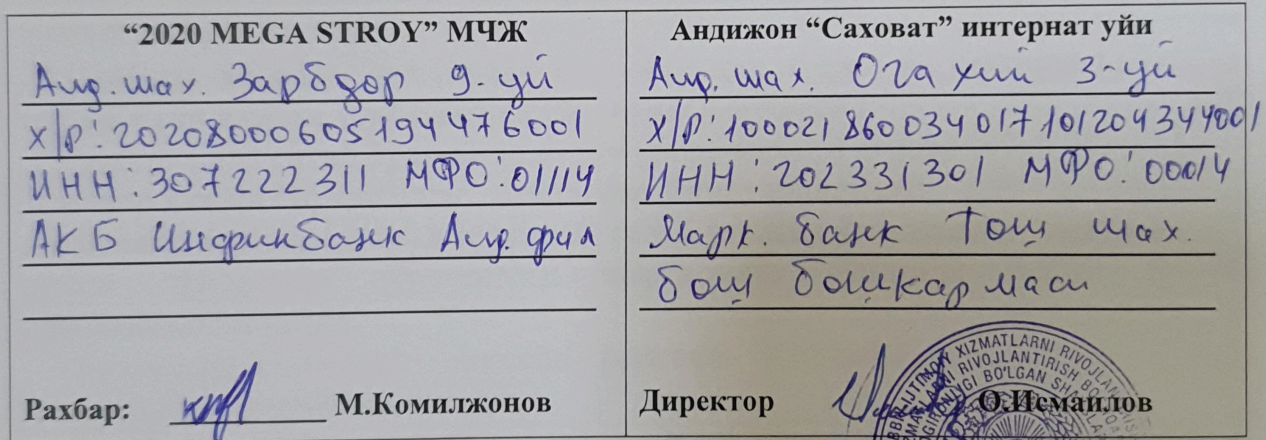 “2020 MEGA STROY” МЧЖ
Анд. шах. Зарбдор 9-уй
Х/Р: 20208000605194476001
ИНН: 307222311 МФО: 01114
АКБ Инфинбанк Анд. фил
Рахбар: М.Комилжонов
Андижон “Саховат” интернат уйи
Анд. шах. Огахий 3-уй
Х/Р: 100021860034017101204344001
ИНН: 202331301 МФО: 00014
Марк. банк Тош шах.
бош бошкармаси
Директор О.Исмаилов
IJTIMOIY XIZMATLARNI RIVOJLAN
RIVOJLANTIRISH
BO'LGAN